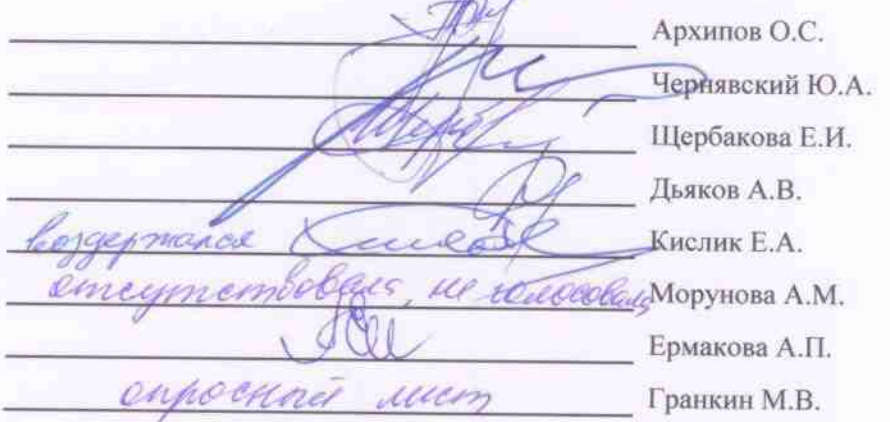 Архипов О.С.
Чернявский Ю.А.
Щербакова Е.И.
Дьяков А.В.
воздержался Кислик Е.А.
отсутствовала, не голосовала Морунова А.М.
Ермакова А.П.
опросный лист Гранкин М.В.